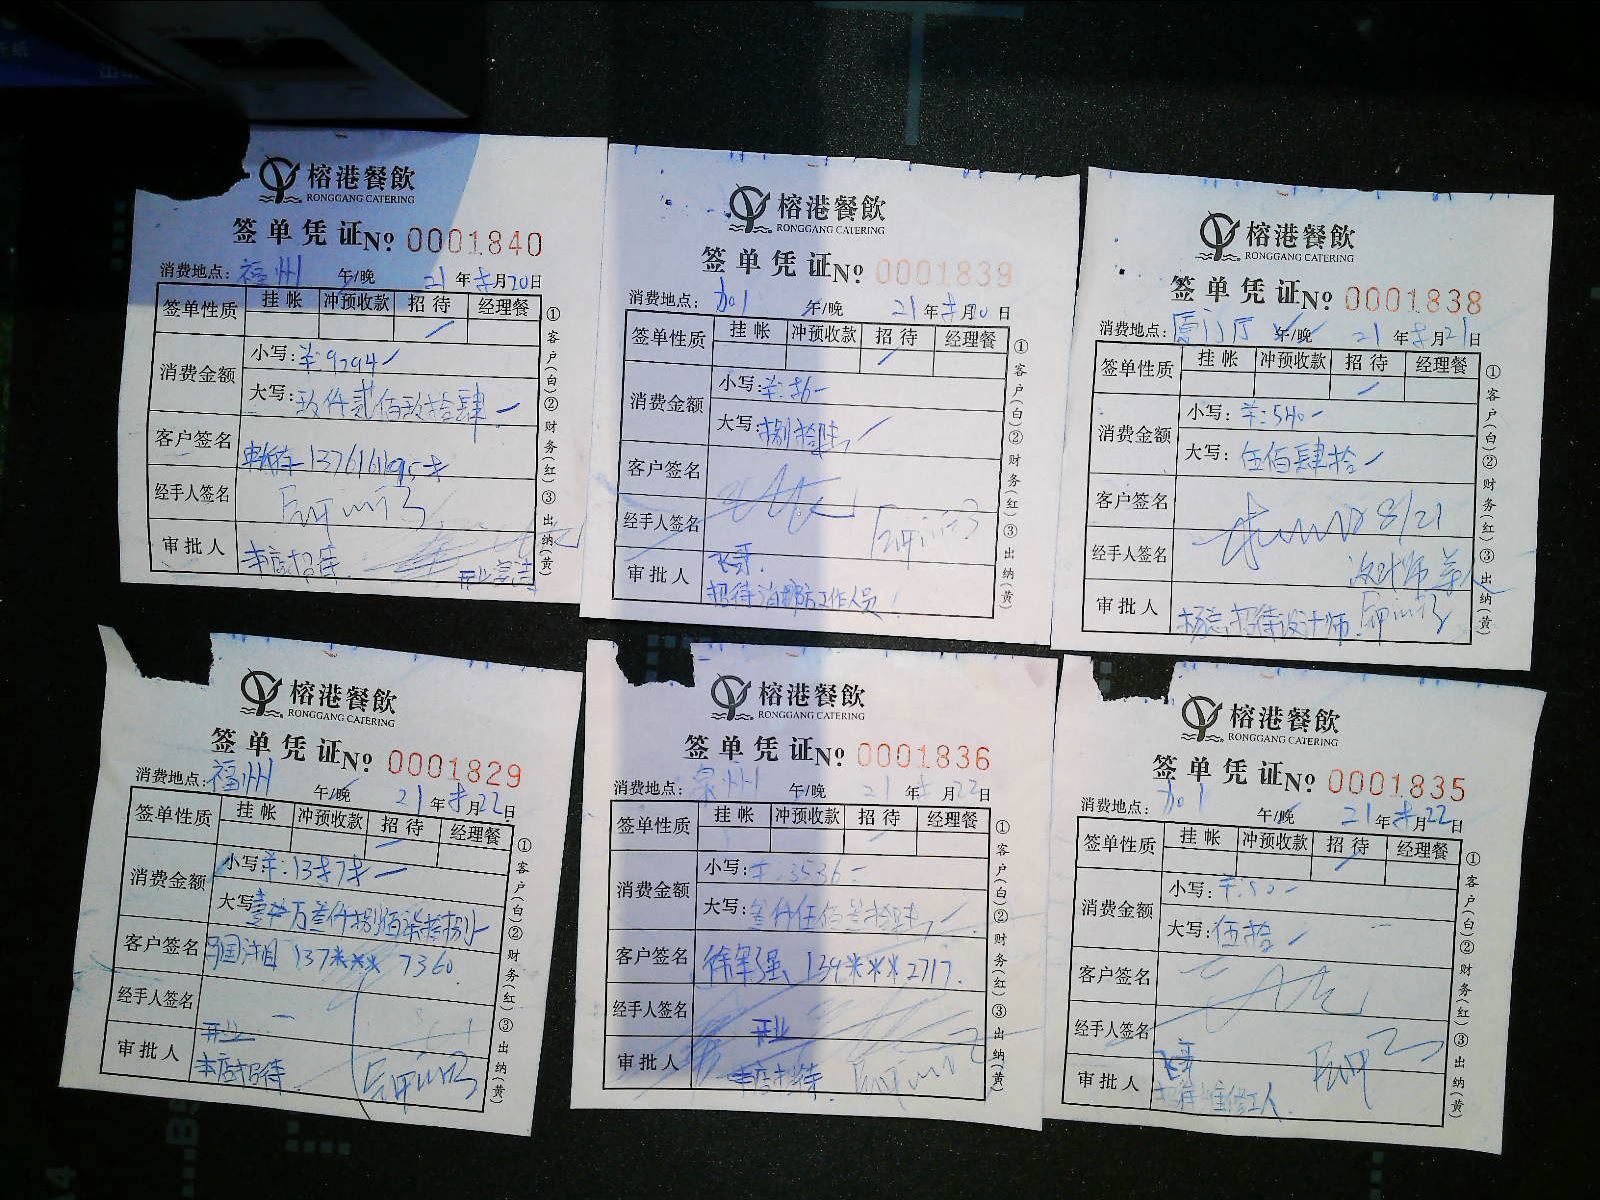 榕港餐飲
RONGGANG CATERING
签单凭证 № 0001840
消费地点：福州 午/晚 21年8月20日
签单性质 挂帐 冲预收款 招待 经理餐
消费金额 小写：¥:9294
大写：玖仟贰佰玖拾肆
客户签名
经手人签名
审批人 本店招待 开业宴请
①客户(白)②财务(红)③出纳(黄)
榕港餐飲
RONGGANG CATERING
签单凭证 № 0001839
消费地点：加1 午/晚 21年8月 日
签单性质 挂帐 冲预收款 招待 经理餐
消费金额 小写：¥:86
大写：捌拾陆
客户签名
经手人签名
审批人 飞哥.
招待消防工作人员！
①客户(白)②财务(红)③出纳(黄)
榕港餐飲
RONGGANG CATERING
签单凭证 № 0001838
消费地点：厦门厅 午/晚 21年8月21日
签单性质 挂帐 冲预收款 招待 经理餐
消费金额 小写：¥:540
大写：伍佰肆拾
客户签名 8/21
经手人签名 设计师
审批人 招待设计师.
①客户(白)②财务(红)③出纳(黄)
榕港餐飲
RONGGANG CATERING
签单凭证 № 0001829
消费地点：福州 午/晚 21年8月22日
签单性质 挂帐 冲预收款 招待 经理餐
消费金额 小写：¥:13878
大写：壹万叁仟捌佰柒拾捌
客户签名 137*** 7360
经手人签名 开业
审批人 本店招待
①客户(白)②财务(红)③出纳(黄)
榕港餐飲
RONGGANG CATERING
签单凭证 № 0001836
消费地点：泉州 午/晚 21年8月22日
签单性质 挂帐 冲预收款 招待 经理餐
消费金额 小写：¥:3536
大写：叁仟伍佰叁拾陆
客户签名 139***2717.
经手人签名 开业
审批人 本店招待
①客户(白)②财务(红)③出纳(黄)
榕港餐飲
RONGGANG CATERING
签单凭证 № 0001835
消费地点：加1 午/晚 21年8月22日
签单性质 挂帐 冲预收款 招待 经理餐
消费金额 小写：¥:50
大写：伍拾
客户签名
经手人签名
审批人 飞哥
招待 维修工人.
①客户(白)②财务(红)③出纳(黄)